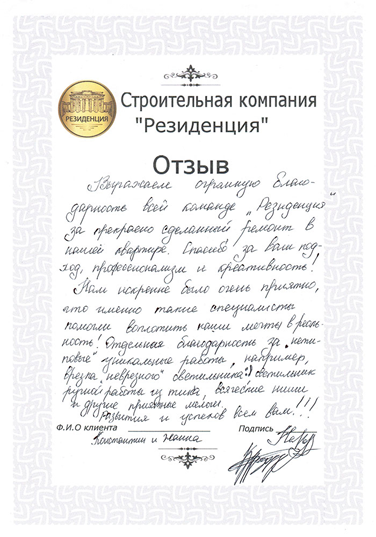 РЕЗИДЕНЦИЯ
Строительная компания
"Резиденция"
Отзыв
Выражаем огромную благо-
дарность всей команде „Резиденция"
за прекрасно сделанный ремонт в
нашей квартире. Спасибо за ваш под-
ход, профессионализм и креативность!
Нам искренне было очень приятно,
что именно такие специалисты
помогли воплотить наши мечты в реаль-
ность! Отдельная благодарность за „нети-
повые" уникальные работы, например,
врезка „неврезного" светильника:) светильник
ручной работы из тика, всяческие ниши
и другие приятные мелочи.
Развития и успехов всем вам!!!
Ф.И.О клиента
Подпись
Константин и Жанна